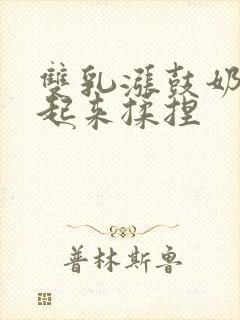 雙乳漲鼓奶
起来揉捏
普林斯鲁